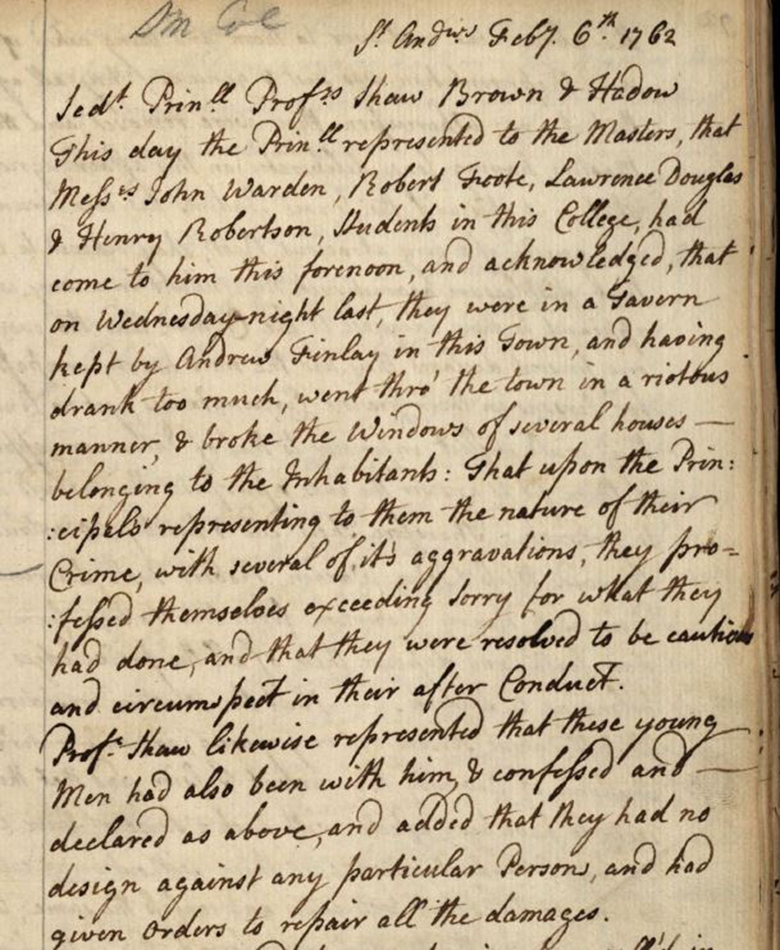 Dm Col
St. Andws Feby. 6th. 1762
Sedt. Prinll Profsrs Shaw Brown & Hadow
This day the Prinll represented to the Masters, that
Messrs John Warden, Robert Foote, Lawrence Douglas
& Henry Robertson, Students in this College, had
come to him this forenoon, and acknowledged, that
on Wednesday-night last, they were in a Tavern
kept by Andrew Finlay in this Town, and having
drank too much, went thro' the town in a riotous
manner, & broke the Windows of several houses —
belonging to the Inhabitants: That upon the Prin:
:cipals representing to them the nature of their
Crime, with several of it's aggravations, they pro-
:fessed themselves exceeding sorry for what they
had done, and that they were resolved to be cautious
and circumspect in their after Conduct.
Profr. Shaw likewise represented that these young
Men had also been with him, & confessed and —
declared as above, and added that they had no
design against any particular Person, and had
given orders to repair all the damages.